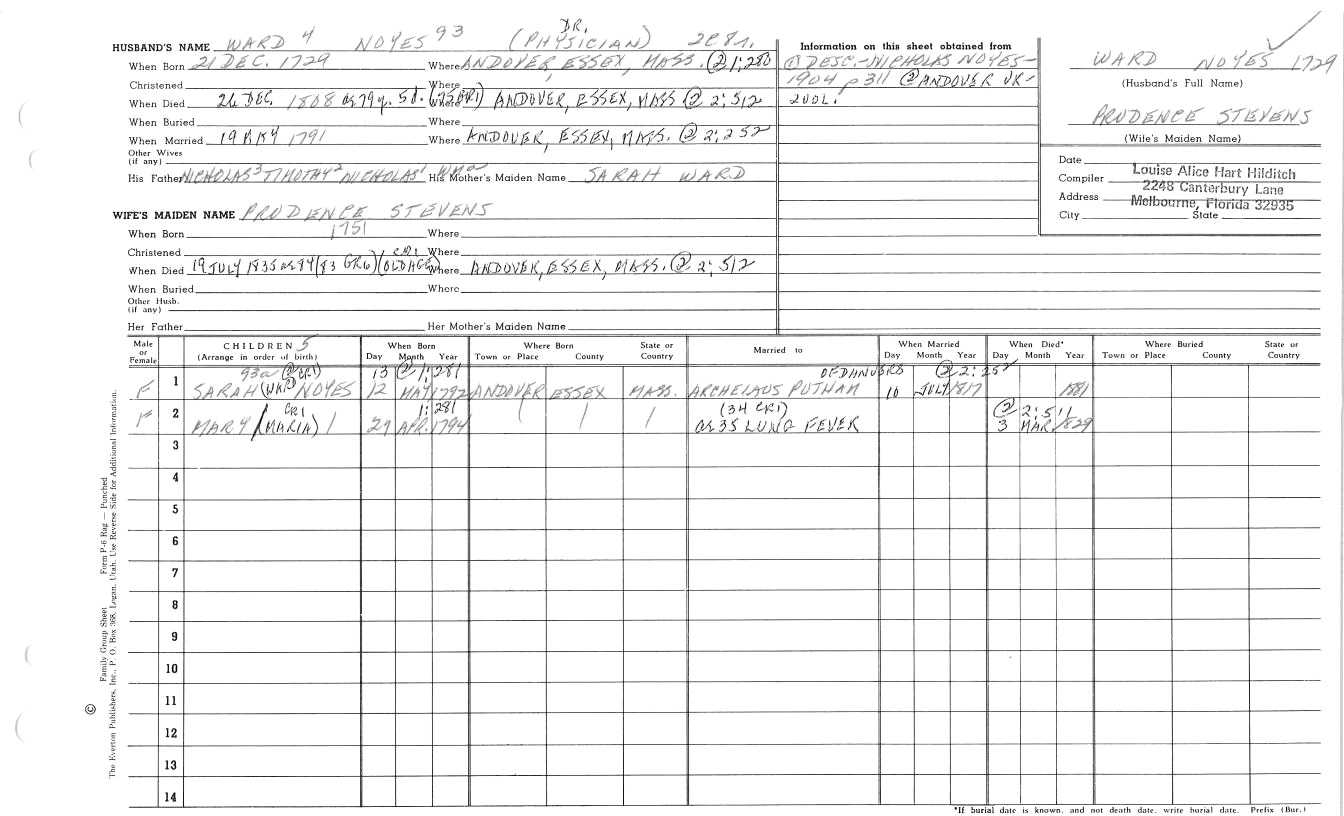 HUSBAND'S NAME WARD 4 NOYES 93 (PHYSICIAN) DR.
When Born 21 DEC. 1729 Where ANDOVER, ESSEX, MASS. @ 1:280
Christened Where
When Died 26 DEC. 1808 ae 79 y. 5 d. (75 CR1) Where ANDOVER, ESSEX, MASS @ 2:512
When Buried Where
When Married 19 MAY 1791 Where ANDOVER, ESSEX, MASS. @ 2:252
Other Wives
(if any)
His Father NICHOLAS3 TIMOTHY2 NICHOLAS1 His Mother's Maiden Name SARAH WARD
WIFE'S MAIDEN NAME PRUDENCE STEVENS
When Born 1751 Where
Christened Where
When Died 19 JULY 1835 ae 84 (83 GR6) (OLD AGE CR1) Where ANDOVER, ESSEX, MASS. @ 2:512
When Buried Where
Other Husb.
(if any)
Her Father Her Mother's Maiden Name
Information on this sheet obtained from
① DESC.-NICHOLAS NOYES-
1904 p 311 @ ANDOVER VR-
2 VOL.
WARD NOYES 1729
(Husband's Full Name)
PRUDENCE STEVENS
(Wife's Maiden Name)
Date
Compiler Louise Alice Hart Hilditch
Address 2248 Canterbury Lane
Melbourne, Florida 32935
City State
Male or Female CHILDREN 5 (Arrange in order of birth) When Born Day Month Year Where Born Town or Place County State or Country Married to When Married Day Month Year When Died* Day Month Year Where Buried Town or Place County State or Country
93a @ CR1) 13 @ 1:281 OF DANVERS @ 2:252
F 1 SARAH (WARD) NOYES 12 MAY 1792 ANDOVER ESSEX MASS. ARCHELAUS PUTNAM 10 JULY 1817 1881
CR1 1:281 (34 CR1) @ 2:511
F 2 MARY (MARIA) 29 APR. 1794 ae 35 LUNG FEVER 3 MAR. 1829
3
4
5
6
7
8
9
10
11
12
13
14
*If burial date is known, and not death date, write burial date. Prefix (Bur.)
© Family Group Sheet Form P-6 Rag — Punched
The Everton Publishers, Inc., P. O. Box 368, Logan, Utah. Use Reverse Side for Additional Information.